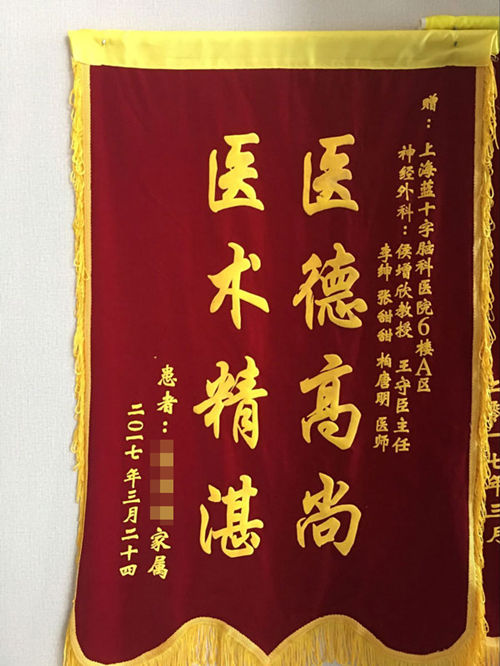 赠：上海蓝十字脑科医院6楼A区
神经外科：侯增欣教授 王守臣主任
李绅 张甜甜 柏唐明 医师
医德高尚
医术精湛
患者：家属
二〇一七年三月二十四